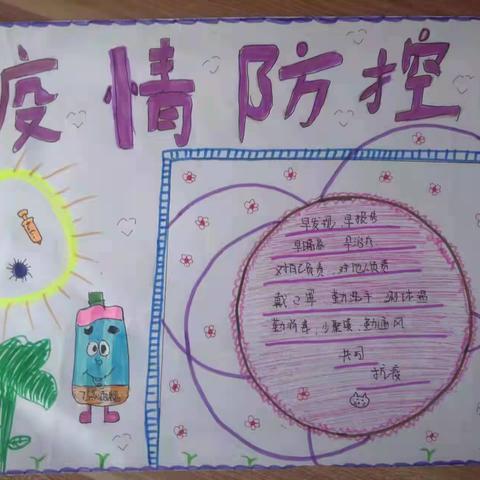 疫情防控
早发现 早报告
早隔离 早治疗
对自己负责,对他人负责
戴口罩 勤洗手 测体温
勤消毒,少聚集,勤通风
共同
抗疫